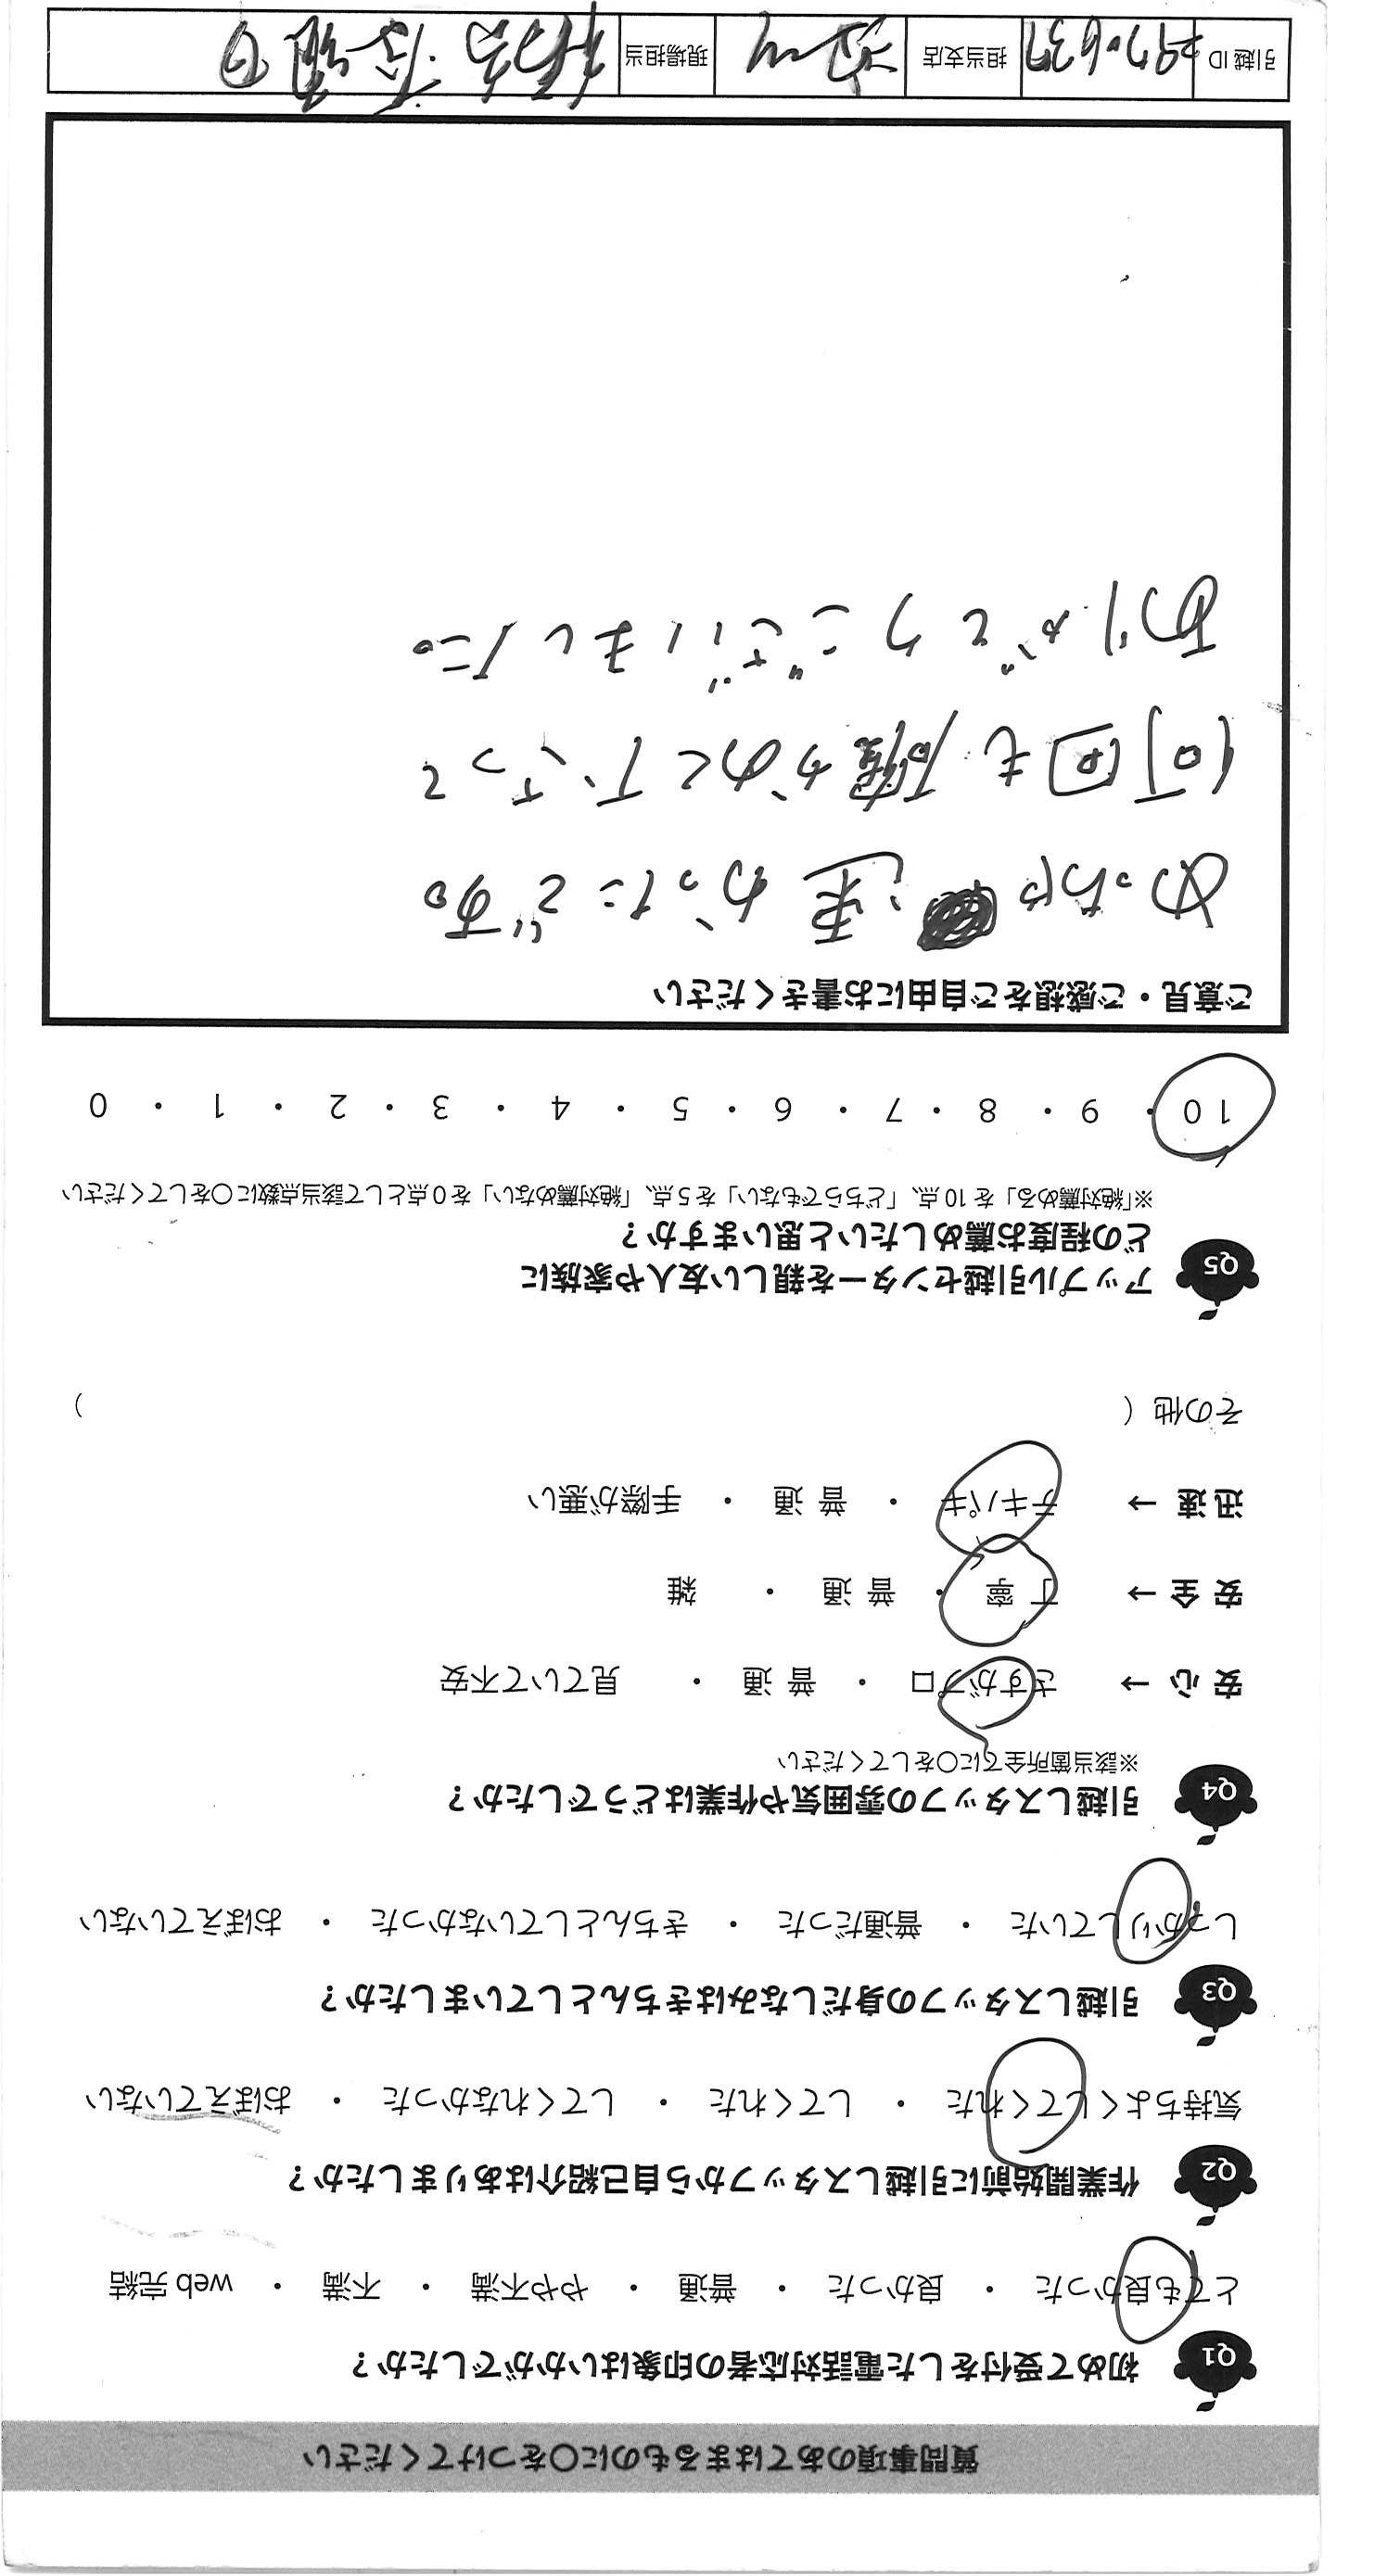 質問事項のあてはまるものに○をつけてください
Q1 初めて受付をした電話対応者の印象はいかがでしたか？
とても良かった ・ 良かった ・ 普通 ・ やや不満 ・ 不満 ・ web 完結
Q2 作業開始前に引越しスタッフから自己紹介はありましたか？
気持ちよくしてくれた ・ してくれた ・ してくれなかった ・ おぼえていない
Q3 引越しスタッフの身だしなみはきちんとしていましたか？
しっかりしていた ・ 普通だった ・ きちんとしていなかった ・ おぼえていない
Q4 引越しスタッフの雰囲気や作業はどうでしたか？
※該当箇所全てに○をしてください
安 心 → さすがプロ ・ 普 通 ・ 見ていて不安
安 全 → 丁 寧 ・ 普 通 ・ 雑
迅 速 → テキパキ ・ 普 通 ・ 手際が悪い
その他（ ）
Q5 アップル引越センターを親しい友人や家族に
どの程度お薦めしたいと思いますか？
※「絶対薦める」を 10 点、「どちらでもない」を 5 点、「絶対薦めない」を 0 点として該当点数に○をしてください
10 ・ 9 ・ 8 ・ 7 ・ 6 ・ 5 ・ 4 ・ 3 ・ 2 ・ 1 ・ 0
ご意見・ご感想をご自由にお書きください
めっちゃ 悪かったです。
何回も確かめて下さって
ありがとうございました。
引越 ID 2970637 担当支店 現場担当